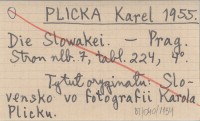 PLICKA Karel 1955.
Die Slowakei. — Prag.
Stron nlb. 7, tabl. 224, 4°.
Tytuł oryginału: Slo-
vensko vo fotografii Karola
Plicku.